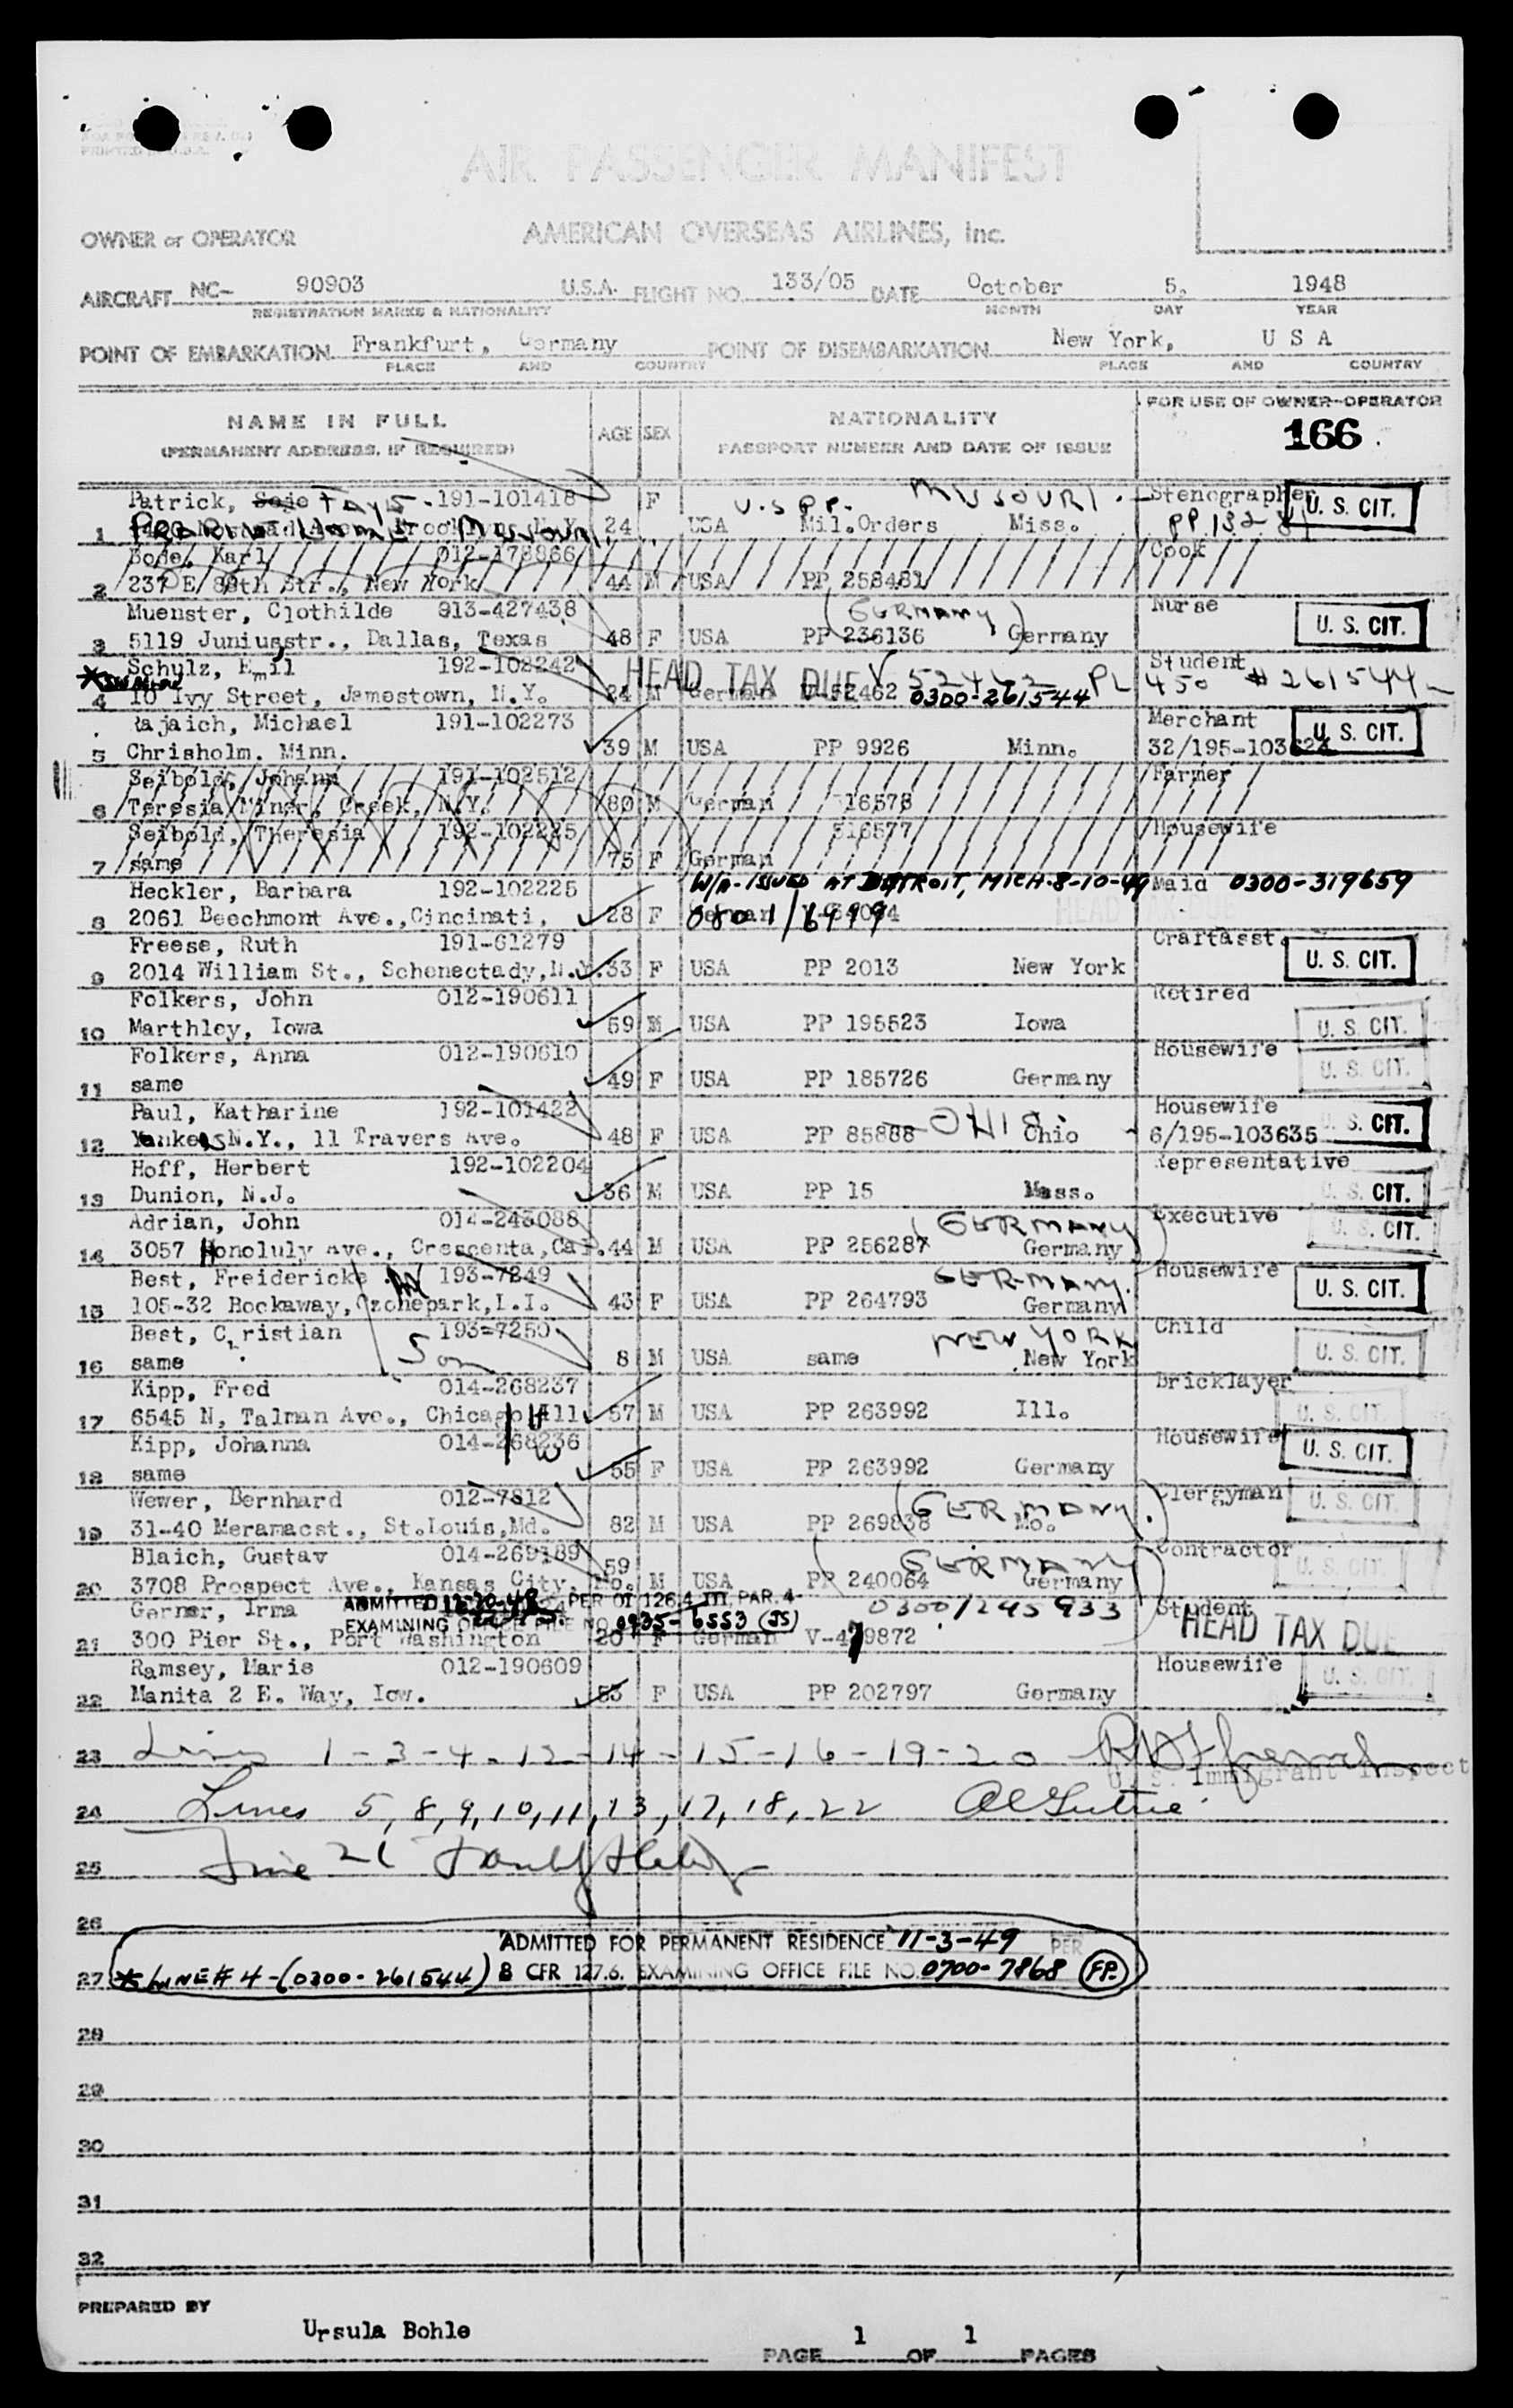 AIR PASSENGER MANIFEST
PRINTED IN U.S.A.
OWNER or OPERATOR AMERICAN OVERSEAS AIRLINES, Inc.
AIRCRAFT NC- 90903 U.S.A. FLIGHT NO. 133/05 DATE October 5. 1948
REGISTRATION MARKS & NATIONALITY MONTH DAY YEAR
POINT OF EMBARKATION Frankfurt, Germany POINT OF DISEMBARKATION New York, U S A
PLACE AND COUNTRY PLACE AND COUNTRY
NAME IN FULL AGE SEX NATIONALITY FOR USE OF OWNER-OPERATOR
(PERMANENT ADDRESS, IF REQUIRED) PASSPORT NUMBER AND DATE OF ISSUE 166
Patrick, 191-101418 F U.S PP. MISSOURI. Stenographer U. S. CIT.
1 MISSOURI 24 USA Mil.Orders Miss. PP 132
Bode, Karl 012-178866 Cook
2 237 E 88th Str., New York 44 M USA PP 258481
Muenster, Clothilde 013-427438 (GERMANY) Nurse U. S. CIT.
3 5119 Juniusstr., Dallas, Texas 48 F USA PP 236136 Germany
Schulz, Emil 192-102242 HEAD TAX DUE V 52462 PL Student
4 10 Ivy Street, Jamestown, N.Y. 24 M German V-52462 0300-261544 450 # 261544
Rajaich, Michael 191-102273 Merchant U. S. CIT.
5 Chrisholm. Minn. 39 M USA PP 9926 Minn. 32/195-103624
Seibold, Johann 191-102512 Farmer
6 Teresia Minor, Creek, N.Y. 80 M German 516578
Seibold, Theresia 192-102225 516577 Housewife
7 same 75 F German
Heckler, Barbara 192-102225 W/A-ISSUED AT DETROIT, MICH-8-10-49 Maid 0300-319659
8 2061 Beechmont Ave.,Cincinati, 28 F German HEAD TAX DUE
Freese, Ruth 191-61279 Craftasst. U. S. CIT.
9 2014 William St., Schenectady,N.Y. 33 F USA PP 2013 New York
Folkers, John 012-190611 Retired
10 Marthley, Iowa 59 M USA PP 195523 Iowa U. S. CIT.
Folkers, Anna 012-190610 Housewife
11 same 49 F USA PP 185726 Germany U. S. CIT.
Paul, Katharine 192-101422 OHIO Housewife
12 Yonkers N.Y., 11 Travers Ave. 48 F USA PP 85888 Ohio 6/195-103635 U. S. CIT.
Hoff, Herbert 192-102204 Representative
13 Dunion, N.J. 36 M USA PP 15 Mass. U. S. CIT.
Adrian, John 014-243088 (GERMANY) Executive
14 3057 Honoluly Ave., Crescenta,Cal. 44 M USA PP 256287 Germany U. S. CIT.
Best, Freidericke 193-7249 GERMANY. Housewife
15 105-32 Rockaway,Ozonepark,L.I. 43 F USA PP 264793 Germany U. S. CIT.
Best, Christian 193-7250 NEW YORK Child
16 same Son 8 M USA same New York U. S. CIT.
Kipp, Fred 014-268237 Bricklayer
17 6545 N, Talman Ave., Chicago Ill H 57 M USA PP 263992 Ill. U. S. CIT.
Kipp, Johanna 014-268236 W Housewife U. S. CIT.
18 same 55 F USA PP 263992 Germany
Wewer, Bernhard 012-7812 (GERMANY.) Clergyman U. S. CIT.
19 31-40 Meramacst., St.Louis,Md. 82 M USA PP 269838 Mo.
Blaich, Gustav 014-269189 59 (GERMANY) Contractor U. S. CIT.
20 3708 Prospect Ave., Kansas City, Mo. M USA PP 240064 Germany
Gerner, Irma ADMITTED 12-20-48 PER OI 126.4 III, PAR. 4 0300/245933 Student
EXAMINING OFFICE FILE NO 0935-6553 (JS) HEAD TAX DUE
21 300 Pier St., Port Washington 20 F German V-479872
Ramsey, Marie 012-190609 Housewife
22 Manita 2 E. Way, Iow. 53 F USA PP 202797 Germany U. S. CIT.
23 Lines 1-3-4-12-14-15-16-19-20
U. S. Immigrant Inspect
24 Lines 5, 8, 9, 10, 11, 13, 17, 18, 22
25 Line 21
26
ADMITTED FOR PERMANENT RESIDENCE 11-3-49 PER
27 * LINE # 4-(0300-261544) 8 CFR 127.6. EXAMINING OFFICE FILE NO. 0700-7868 (FP.)
28
29
30
31
32
PREPARED BY
Ursula Bohle
PAGE 1 OF 1 PAGES